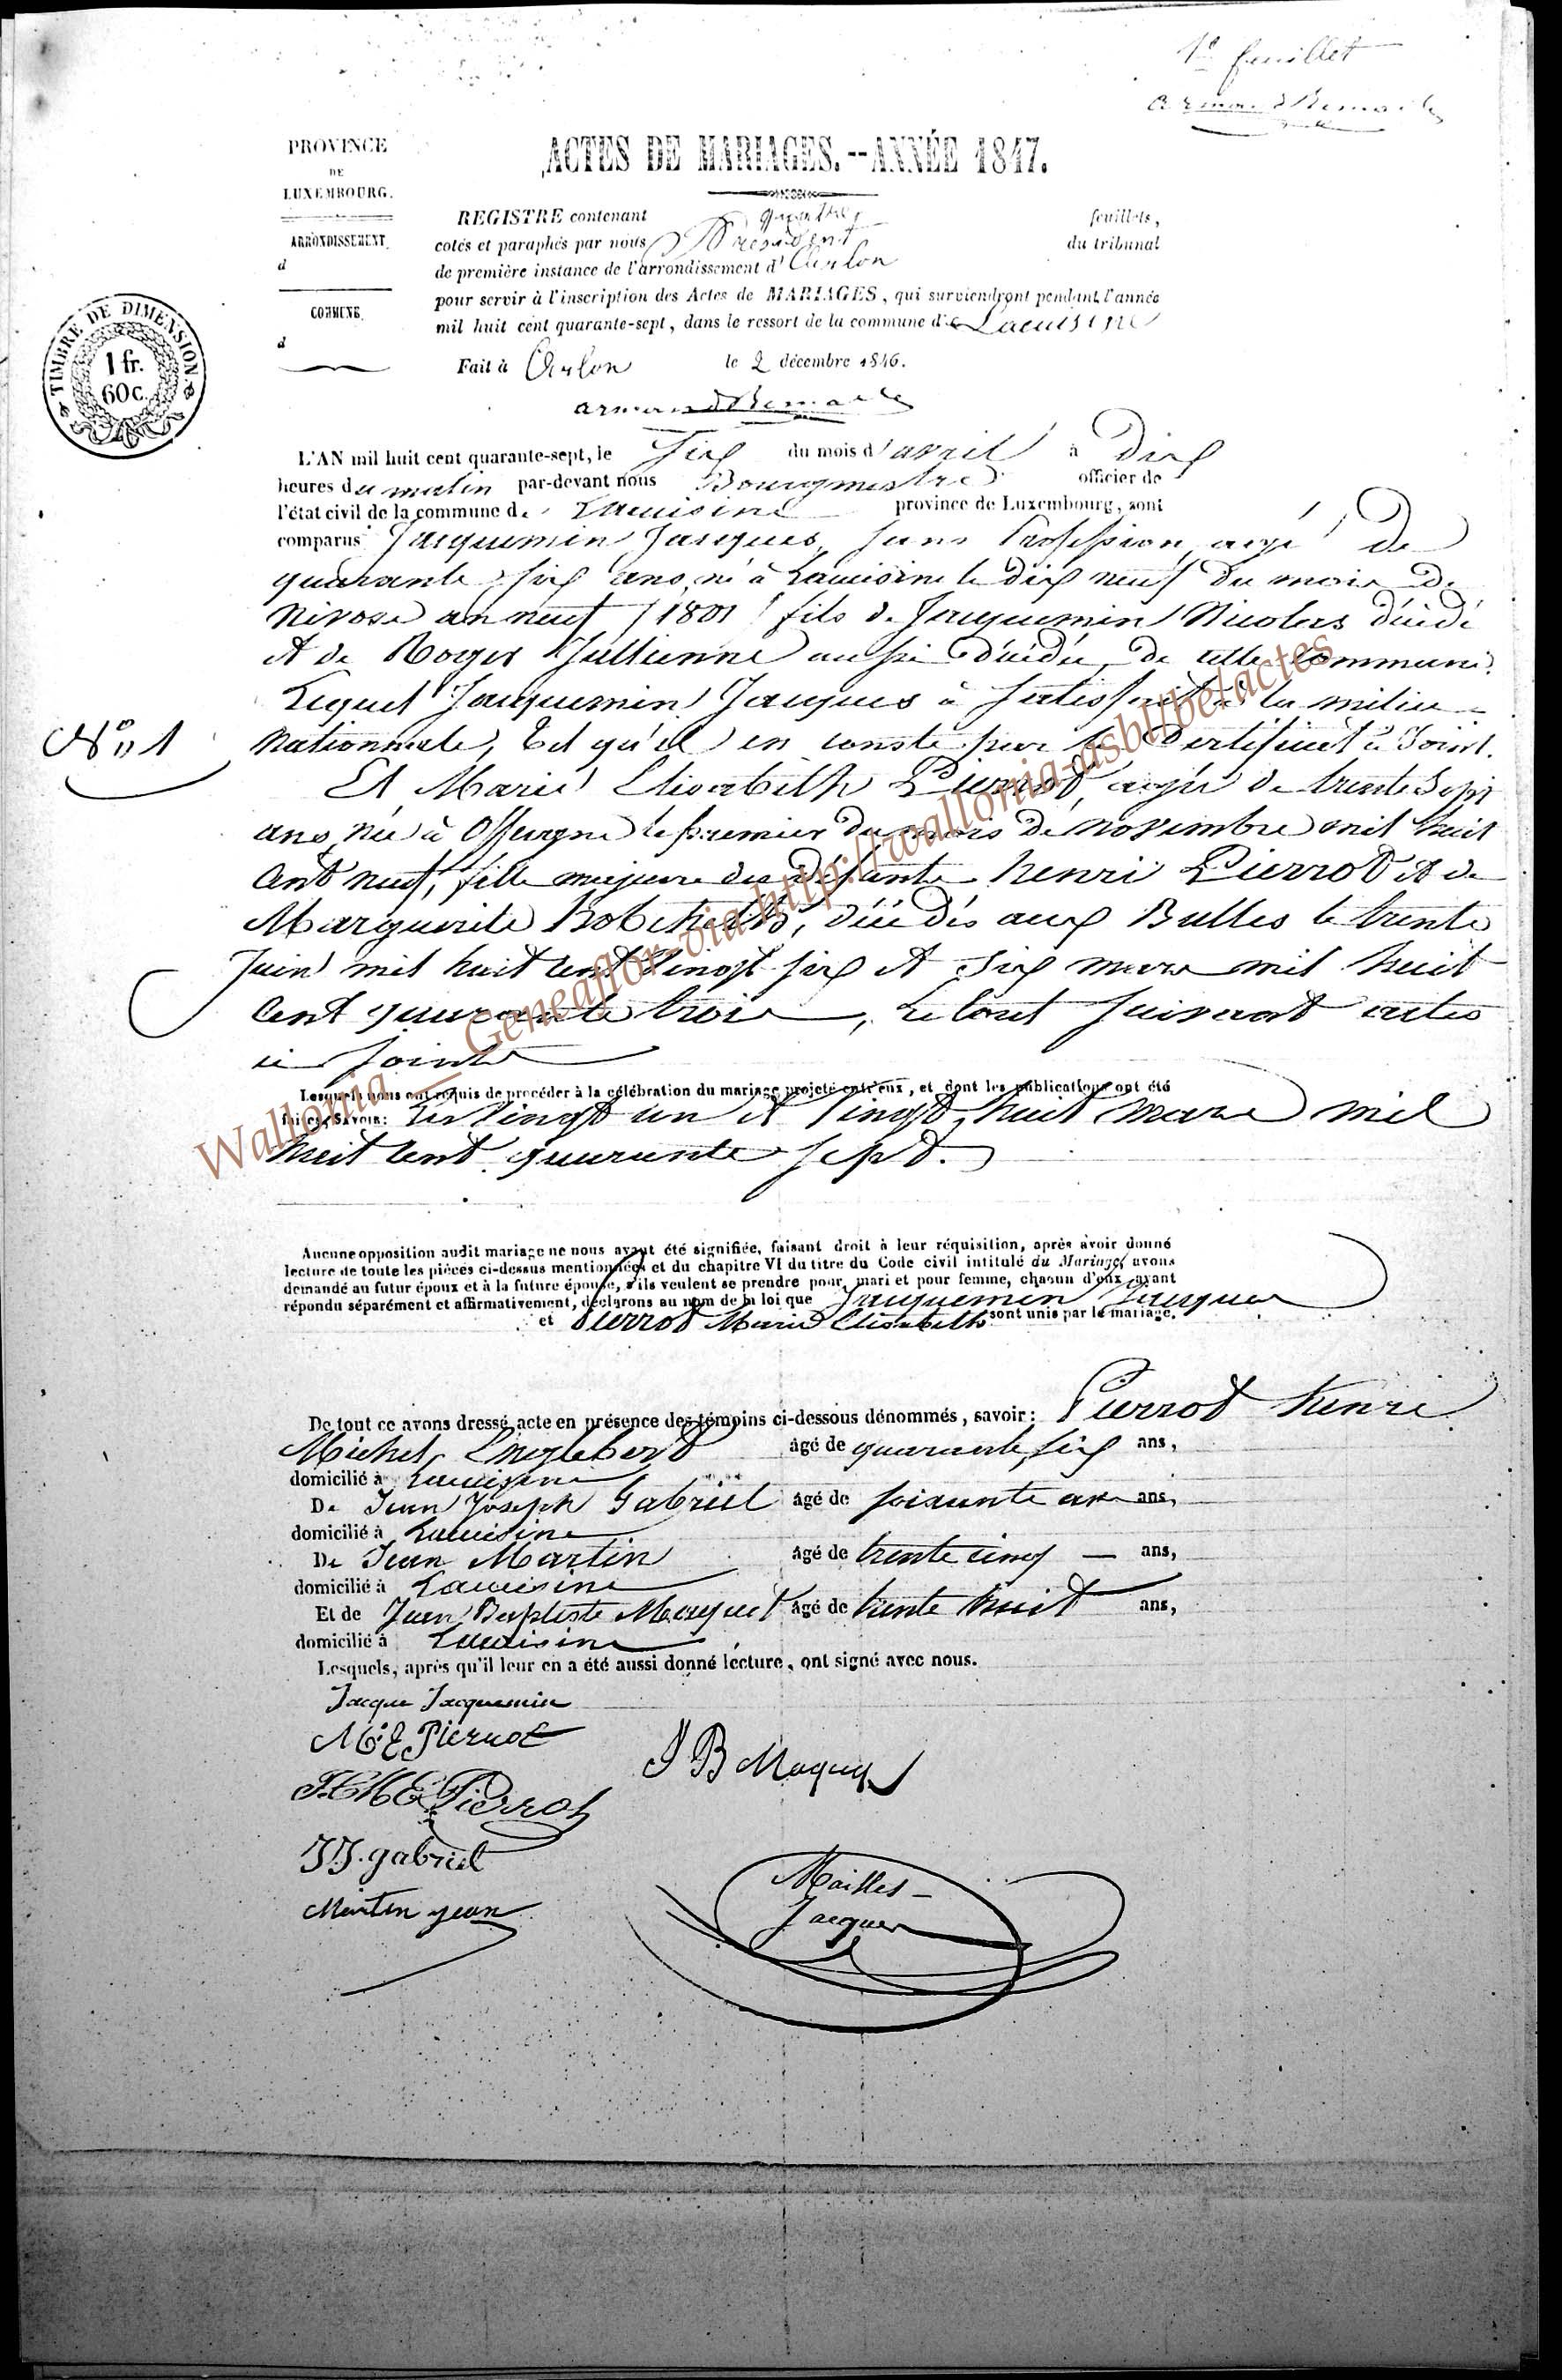 1er feuillet
PROVINCE
DE
LUXEMBOURG.
ARRONDISSEMENT
d
COMMUNE
d
TIMBRE DE DIMENSION
1 fr.
60 c.
ACTES DE MARIAGES. -- ANNÉE 1847.
REGISTRE contenant quatre feuillets,
cotés et paraphés par nous Président du tribunal
de première instance de l'arrondissement d'Arlon
pour servir à l'inscription des Actes de MARIAGES, qui surviendront pendant l'année
mil huit cent quarante-sept, dans le ressort de la commune de Lacuisine
Fait à Arlon le 2 décembre 1846.
L'AN mil huit cent quarante-sept, le six du mois d'avril à dix
heures du matin par-devant nous Bourgmestre officier de
l'état civil de la commune de Lacuisine province de Luxembourg, sont
comparus Jacquemin Jacques, sans Profession, agé de
quarante six ans, né à Lacuisine le dix neuf du mois de
Nivose an neuf (1801) fils de Jacquemin Nicolas décédé
et de Roger Jullienne aussi décédée, de cette commune.
Lequel Jacquemin Jacques à satisfait à la milice
Nationnale, tel qu'il en conste par le Certificat ci Joint.
N° 1
Et Marie Elisabeth Pierrot, agée de trente sept
ans, née à Offagne le premier du mois de novembre mil huit
cent neuf, fille majeure des défunts henri Pierrot et de
Marguerite, décédés aux Bulles le trente
Juin mil huit cent vingt six et six mars mil huit
cent quarante trois, le tout suivant actes
ci joints
Lesquels nous ont requis de procéder à la célébration du mariage projeté entr'eux, et dont les publications ont été
faites, SAVOIR: Les vingt un et vingt huit mars mil
huit cent quarante sept.
Aucune opposition audit mariage ne nous ayant été signifiée, faisant droit à leur réquisition, après avoir donné
lecture de toute les pièces ci-dessus mentionnées et du chapitre VI du titre du Code civil intitulé du Mariage, avons
demandé au futur époux et à la future épouse, s'ils veulent se prendre pour mari et pour femme, chacun d'eux ayant
répondu séparément et affirmativement, déclarons au nom de la loi que Jacquemin Jacques
et Pierrot Marie Elisabeth sont unis par le mariage.
De tout ce avons dressé acte en présence des témoins ci-dessous dénommés, savoir: Pierrot henri
Michel Englebert âgé de quarante six ans,
domicilié à Lacuisine
De Jean Joseph Gabriel âgé de soixante ans,
domicilié à Lacuisine
De Jean Martin âgé de trente cinq ans,
domicilié à Lacuisine
Et de Jean Baptiste Maquet âgé de trente huit ans,
domicilié à Lacuisine
Lesquels, après qu'il leur en a été aussi donné lecture, ont signé avec nous.
Jacque Jacquemin
M: E Pierrot
Pierrot
J B Maquet
JJ. gabriel
Martin jean
Jacques
Wallonia _ Geneaflor via http://wallonia-asbl/be/actes